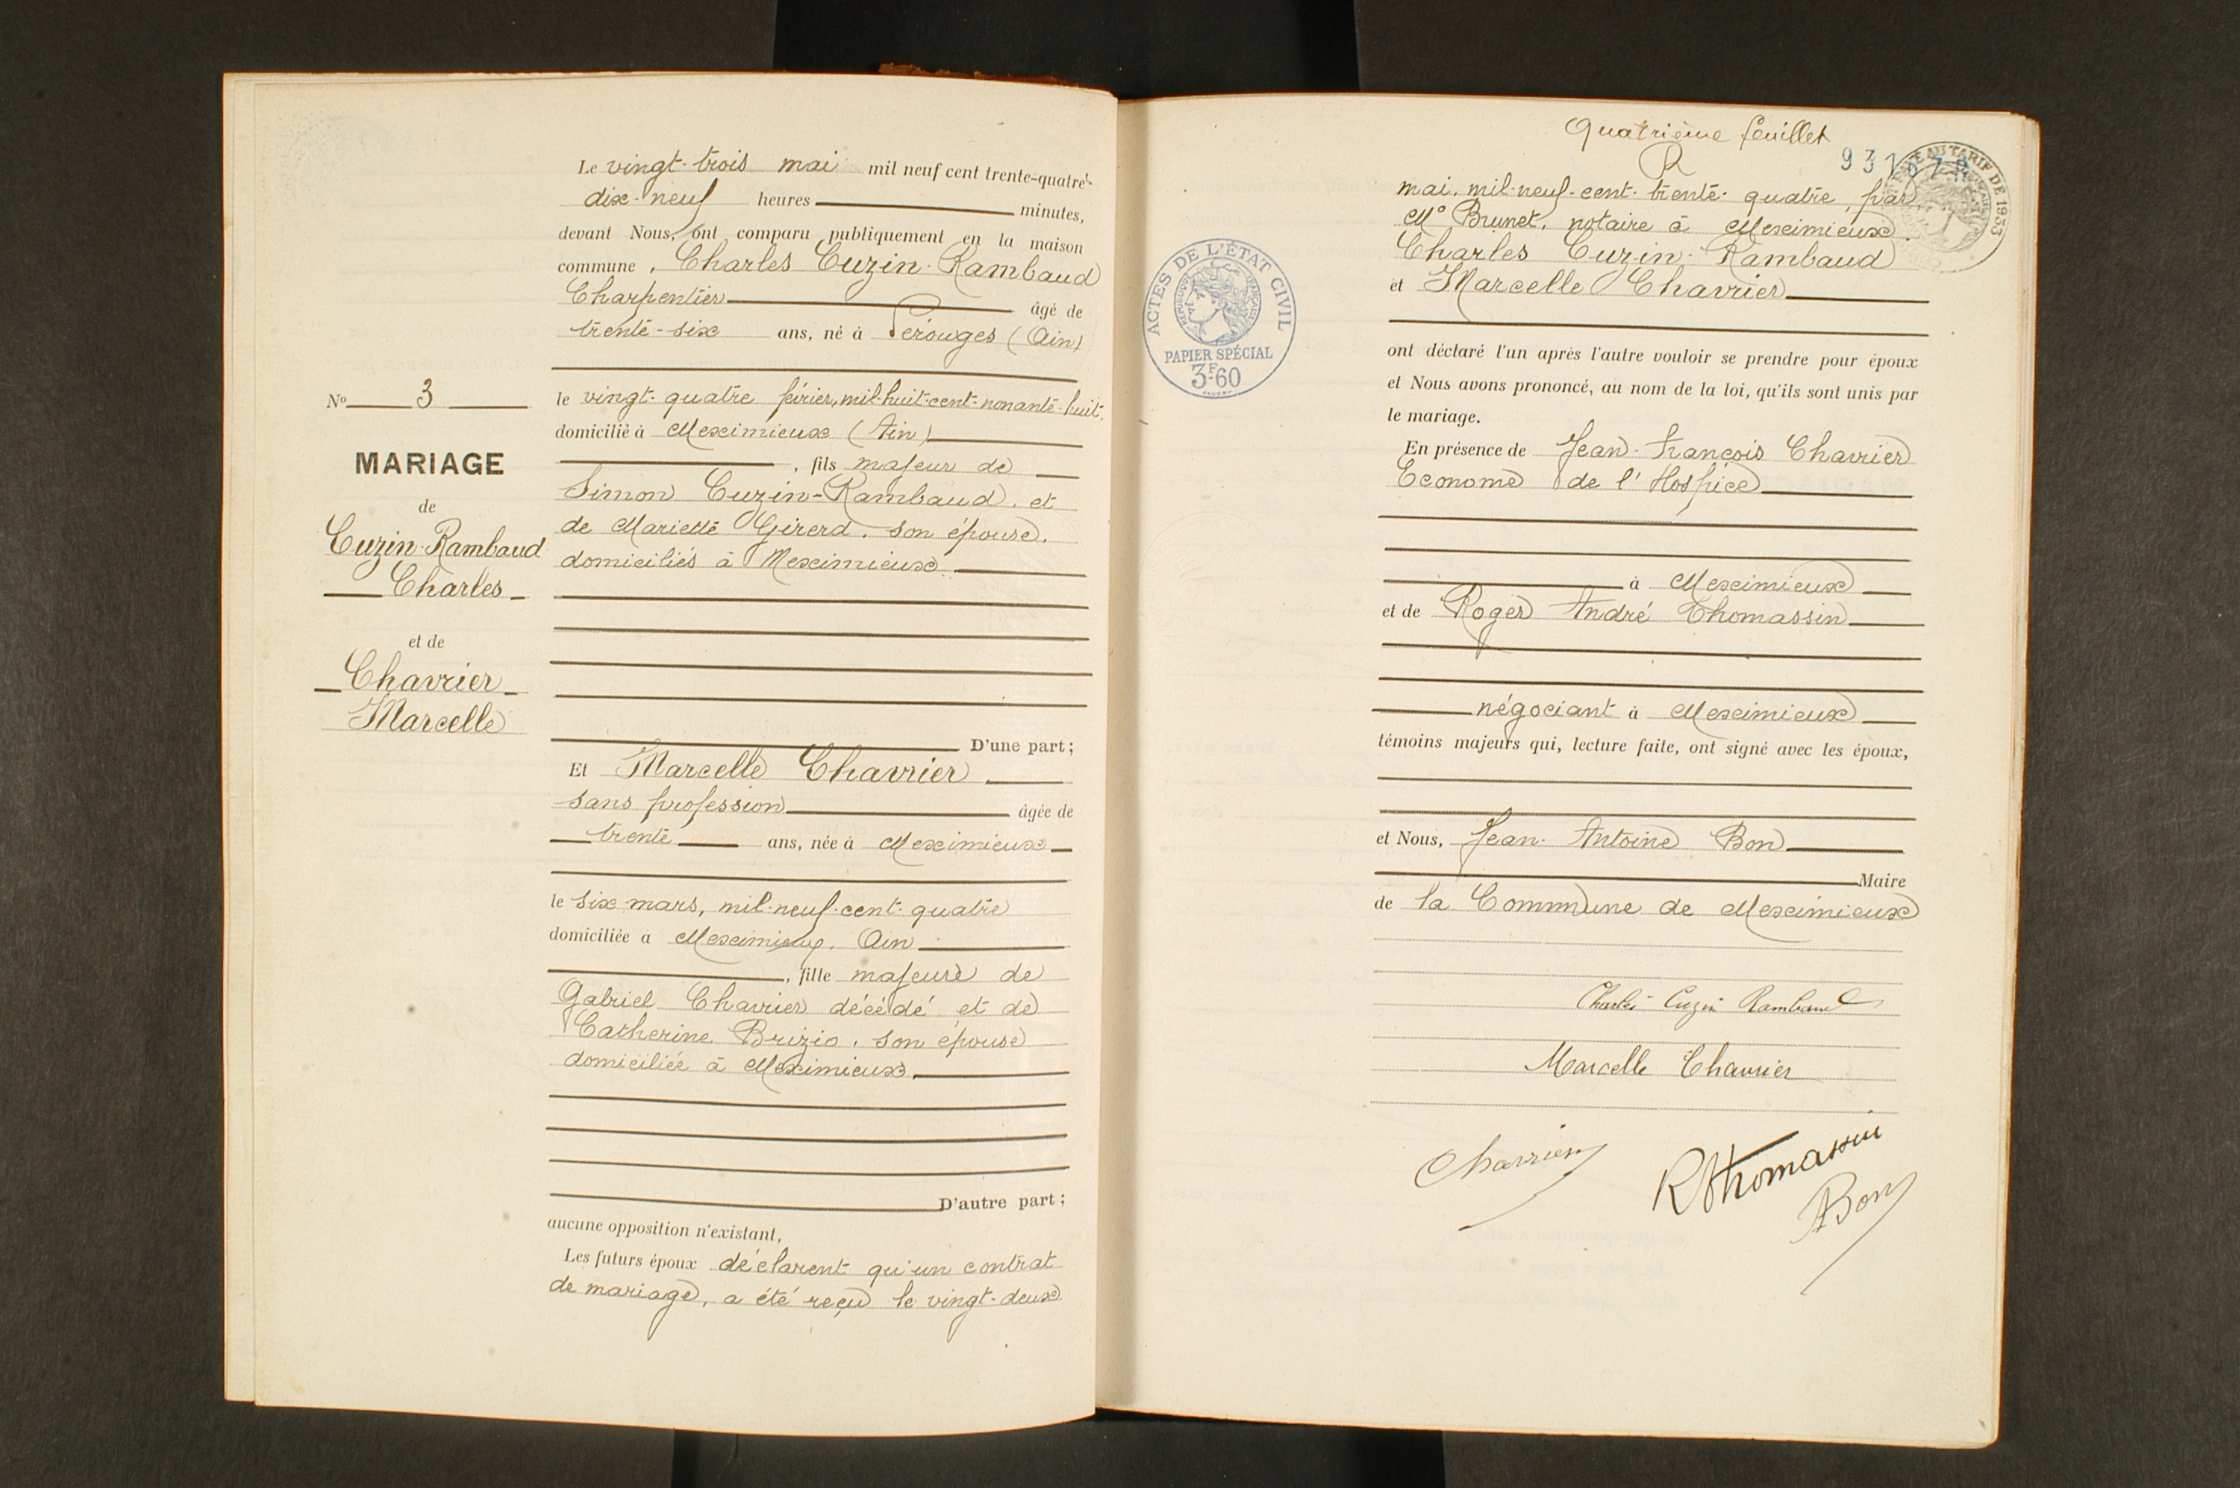 Le vingt-trois mai mil neuf cent trente-quatre-
dix-neuf heures minutes,
devant Nous, ont comparu publiquement en la maison
commune, Charles Cuzin-Rambaud
Charpentier âgé de
trente-six ans, né à Pérouges (Ain)
le vingt-quatre février, mil-huit-cent-nonante-huit.
domicilié à Meximieux (Ain)
, fils majeur de
Simon Cuzin-Rambaud, et
de Mariette Girerd, son épouse,
domiciliés à Meximieux
D'une part;
Et Marcelle Chavrier
sans profession âgée de
trente ans, née à Meximieux
le six mars, mil-neuf-cent-quatre
domiciliée à Meximieux, Ain
, fille majeure de
Gabriel Chavrier décédé et de
Catherine Brizio, son épouse
domiciliée à Meximieux,
D'autre part;
aucune opposition n'existant,
Les futurs époux déclarent qu'un contrat
de mariage, a été reçu le vingt-deux
No 3
MARIAGE
de
Cuzin-Rambaud
Charles
et de
Chavrier
Marcelle
Quatrième feuillet
R
TARIF DE 1933
ACTES DE L'ÉTAT CIVIL
RÉPUBLIQUE FRANÇAISE
PAPIER SPÉCIAL
3F.60
mai, mil-neuf-cent-trente-quatre, par
Me Brunet, notaire à Meximieux.
Charles Cuzin-Rambaud
et Marcelle Chavrier
ont déclaré l'un après l'autre vouloir se prendre pour époux
et Nous avons prononcé, au nom de la loi, qu'ils sont unis par
le mariage.
En présence de Jean-François Chavrier
Econome de l'Hospice
à Meximieux
et de Roger André Thomassin
négociant à Meximieux
témoins majeurs qui, lecture faite, ont signé avec les époux,
et Nous, Jean-Antoine Bon
Maire
de la Commune de Meximieux
Charles Cuzin Rambaud
Marcelle Chavrier
Chavrier
RThomassin
ABon